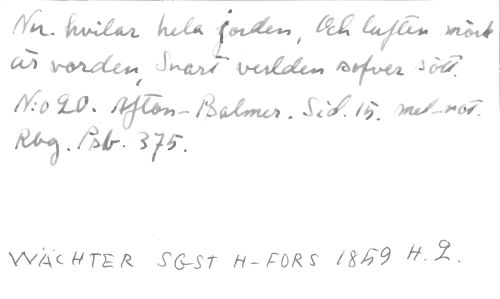 Nu hvilar hela jorden, Och luften mörk
är vorden, Snart verlden sofver sött.
N:o 20. Afton-Balmer. Sid. 15. mel-not.
Rbg. Psb. 375.
WÄCHTER SGST H-FORS 1859 H. 2.